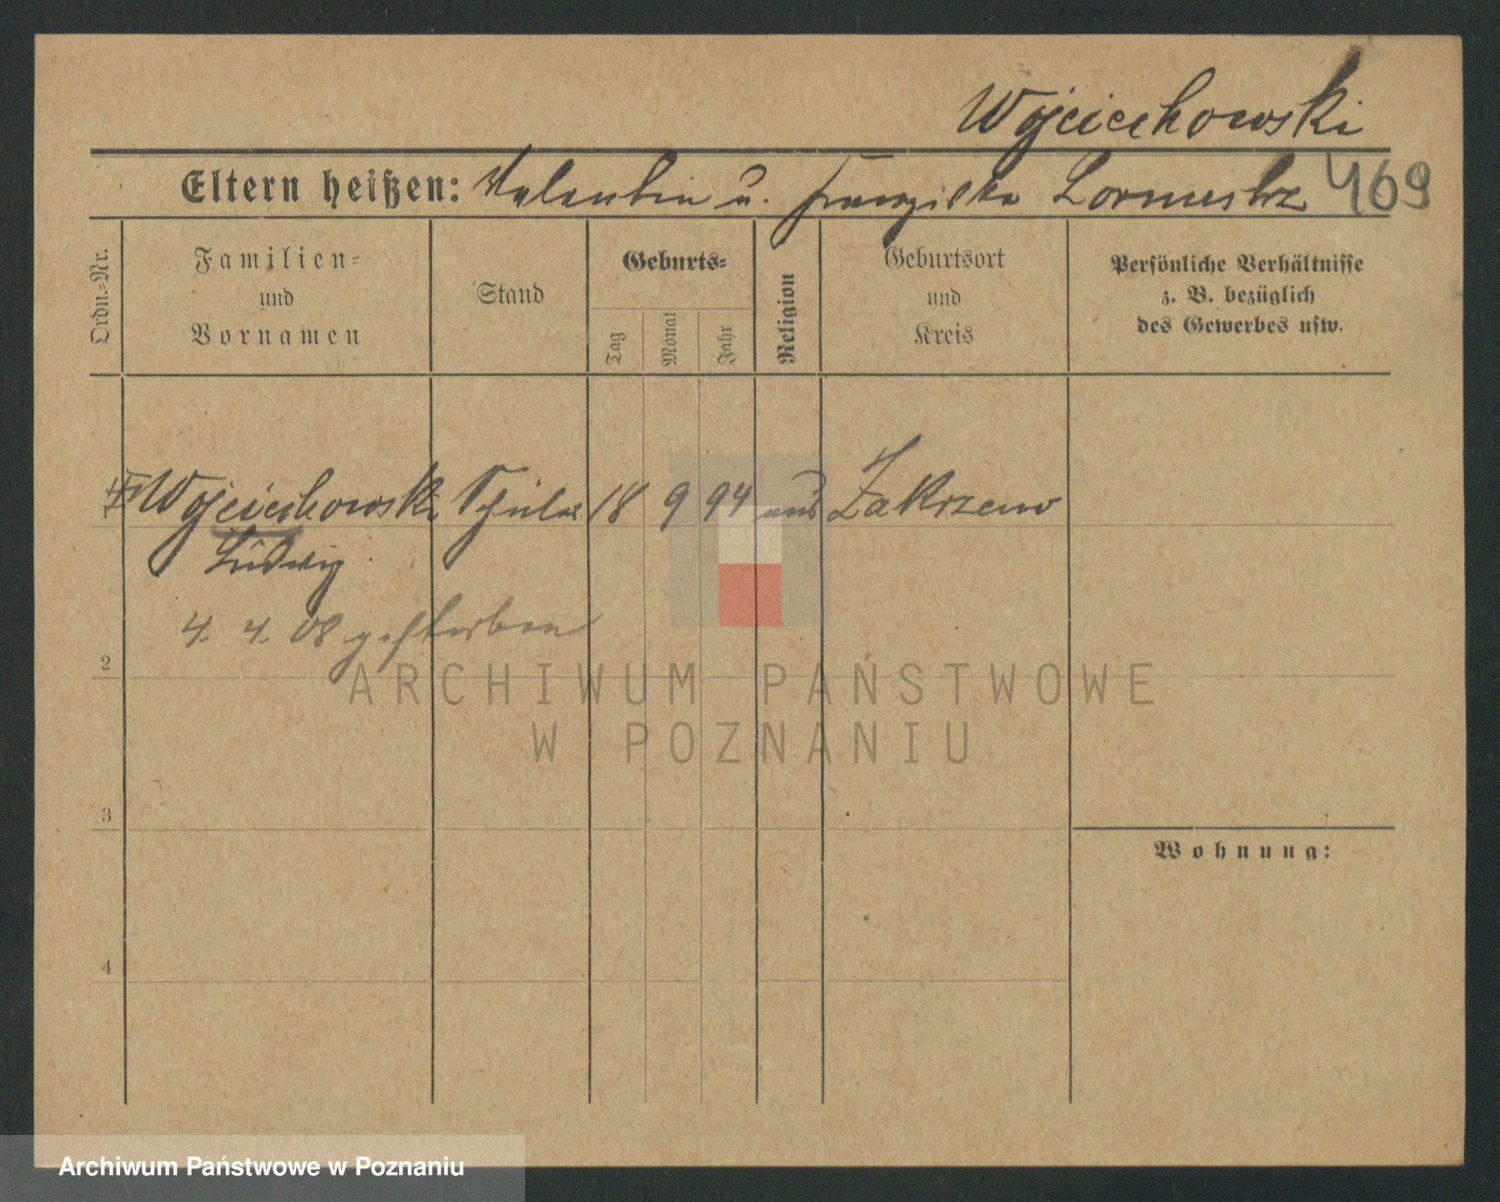 Wojciechowski
Eltern heißen: Valentin u. Franziska 469
Ordn.-Nr.
Familien-
und
Vornamen
Stand
Geburts-
Tag
Monat
Jahr
Religion
Geburtsort
und
Kreis
Persönliche Verhältnisse
z. B. bezüglich
des Gewerbes usw.
Wojciechowski Schüler 18 9 94 Zakrzewo
Ludwig
4. 4. 08 gestorben
2
ARCHIWUM PAŃSTWOWE
W POZNANIU
3
Wohnung:
4
Archiwum Państwowe w Poznaniu